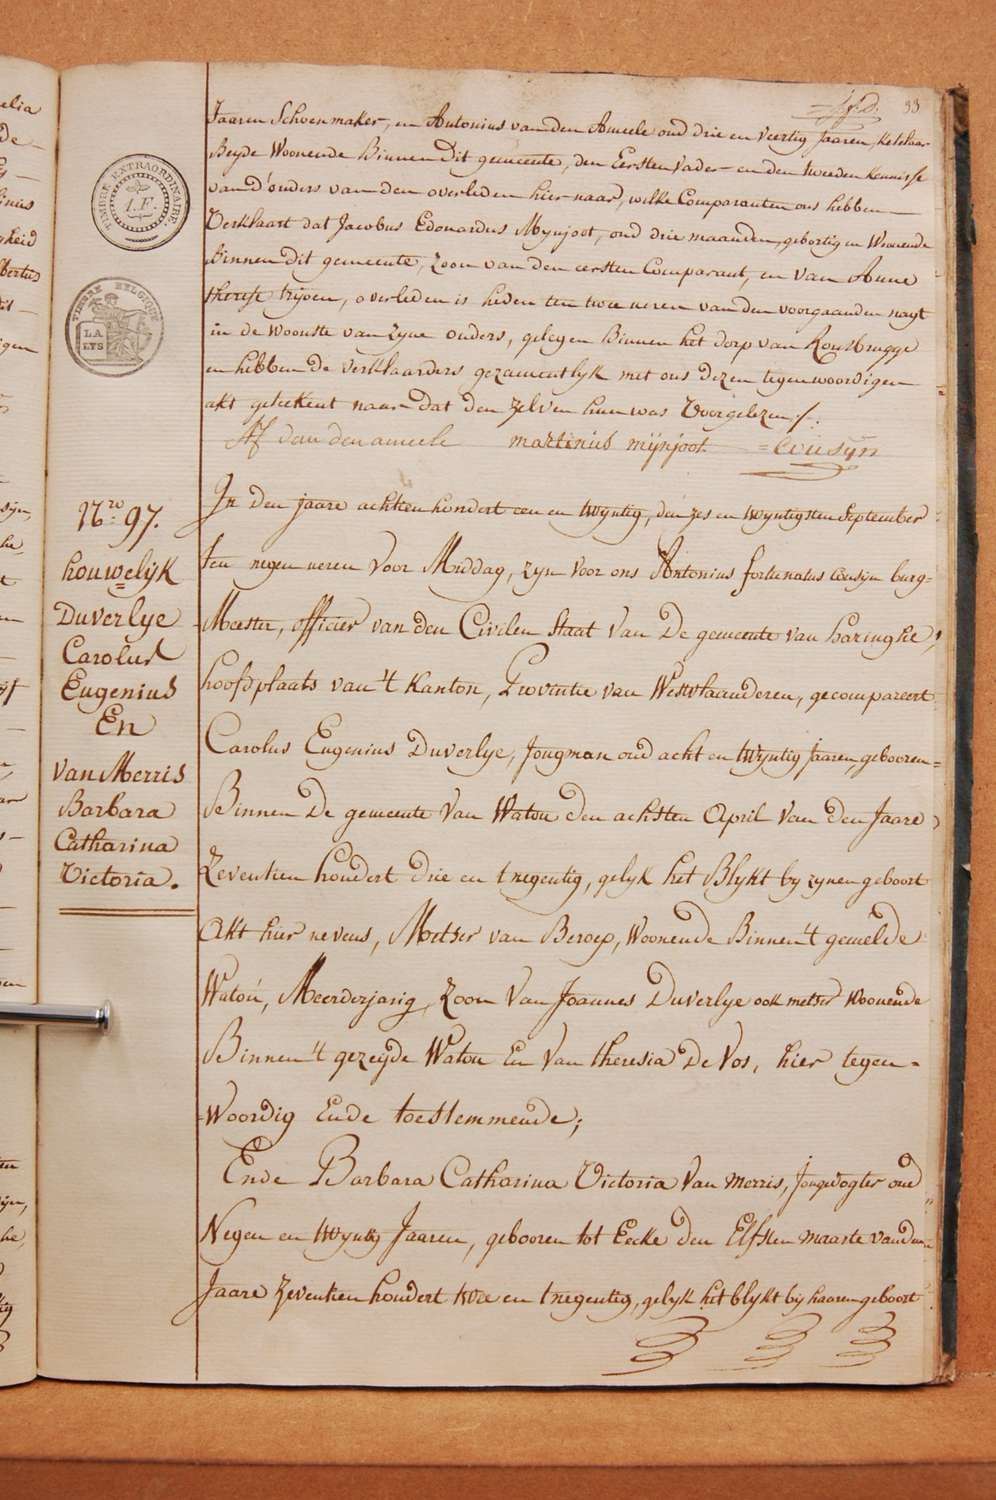 33
Jaaren Schoenmaker, en Antonius van den Ameele oud drie en veertig Jaaren, ketelaar
Beyde Woonende Binnen Dit gemeente, den Eersten Vader en den tweeden kennisse
van d'ouders van den overleden hier naar, welke Comparanten ons hebben
Verklaart dat Jacobus Edouardus Mynjoot, oud drie maanden, gebortig en Woonende
binnen dit gemeente, zoon van den eersten Comparant, en van Anne
therese trijoen, overleden is heden ten twee uren van den voorgaanden nagt
in de Woonste van zyne ouders, gelegen Binnen het dorp van Rousbrugge
en hebben de verklaarders gezamentlyk met ons dezen tegenwoordigen
akt geteekent naar dat den zelven hun was Voorgelezen ./.
AF van den ameele martinus mijnjoot. = Cousyn
TIMBRE EXTRAORDINAIRE.
1.F.
TIMBRE BELGIQUE
LA
LYS
Nro 97.
houwelijk
Duverlye
Carolus
Eugenius
En
Van Merris
Barbara
Catharina
Victoria.
In den jaare achtien hondert een en twyntig, den zes en twyntigsten September
ten negen ueren Voor Middag, zyn Voor ons Antonius fortunatus Cousyn burg=
Meester, officier van den Civilen Staat Van De gemeente van haringhe,
hoofdplaats van 't Kanton, Provintie van Westvlaanderen, gecompareert
Carolus Eugenius Duverlye, Jongman oud acht en twyntig Jaaren, gebooren
Binnen De gemeente Van Watou den achsten April Van den Jaare
Zeventien hondert drie en tnegentig, gelyk het Blykt by zynen geboort
Akt hier nevens, Metser van Beroep, Woonende Binnen 't gemelde
Watou, Meerderjarig, Zoon Van Joannes Duverlye ook metser Woonende
Binnen 't gezeyde Watou En Van theresia De Vos, hier tegen=
=Woordig Ende toestemmende;
Ende Barbara Catharina Victoria Van Merris, Jongedogter oud
Negen en twyntig Jaaren, gebooren tot Eecke den Elfsten maarte van den
Jaare Zeventien hondert twee en tnegentig, gelyk het blykt by haaren geboort